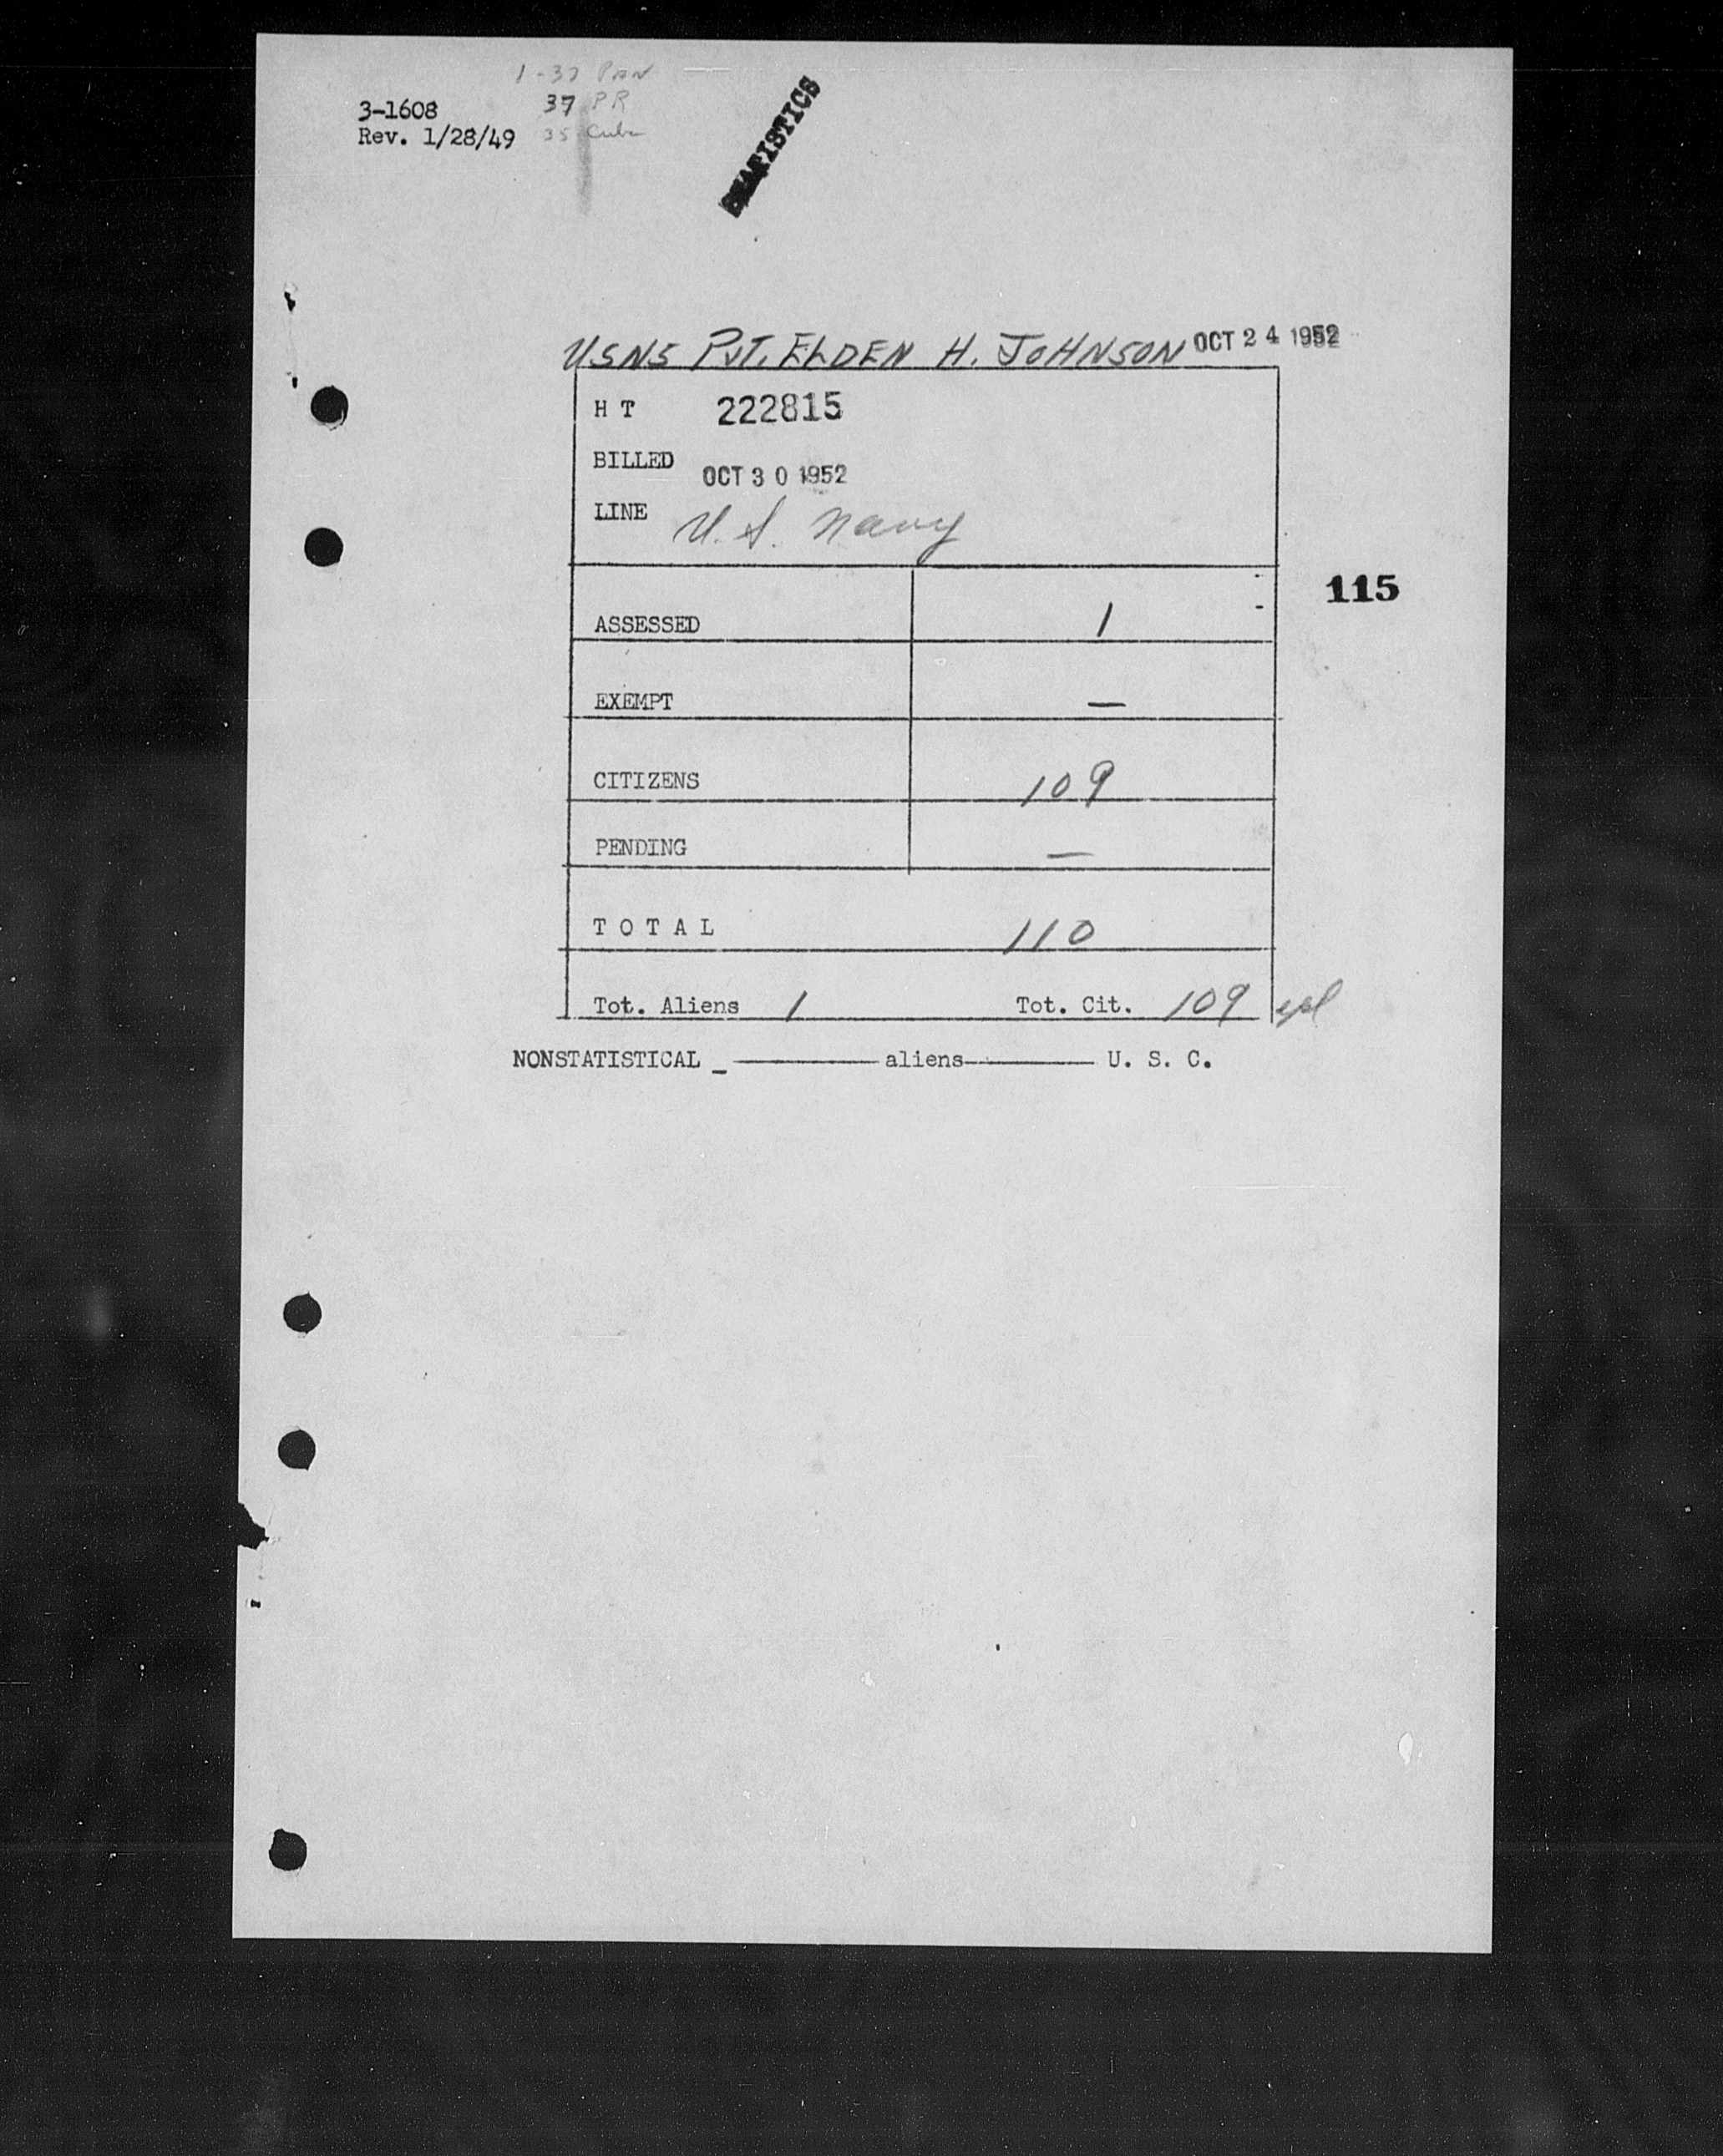 1-37 PAN
3-1608 37 PR
Rev. 1/28/49 35 Cuba
STATISTICS
USNS PVT. ELDEN H. JOHNSON OCT 24 1952
H T 222815
BILLED OCT 30 1952
LINE U.S. Navy
115
ASSESSED 1
EXEMPT —
CITIZENS 109
PENDING —
T O T A L 110
Tot. Aliens 1 Tot. Cit. 109
NONSTATISTICAL _ ———— aliens———— U. S. C.